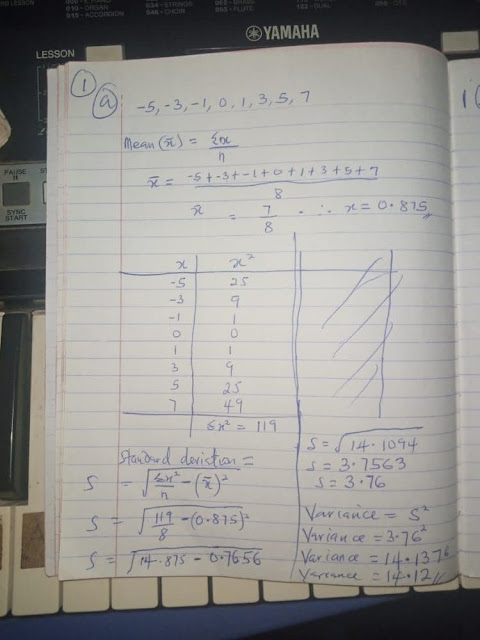 YAMAHA
LESSON
PAUSE
SYNC
START
1
a
-5, -3, -1, 0, 1, 3, 5, 7
Mean (x̄) = Σx
n
x̄ = -5+-3+-1+0+1+3+5+7
8
x̄ = 7 ∴ x = 0.875
8
x x²
-5 25
-3 9
-1 1
0 0
1 1
3 9
5 25
7 49
Σx² = 119
Standard deviation =
S = √Σx²/n - (x̄)²
S = √119/8 - (0.875)²
S = √14.875 - 0.7656
S = √14.1094
S = 3.7563
S = 3.76
Variance = S²
Variance = 3.76²
Variance = 14.1376
Variance = 14.12